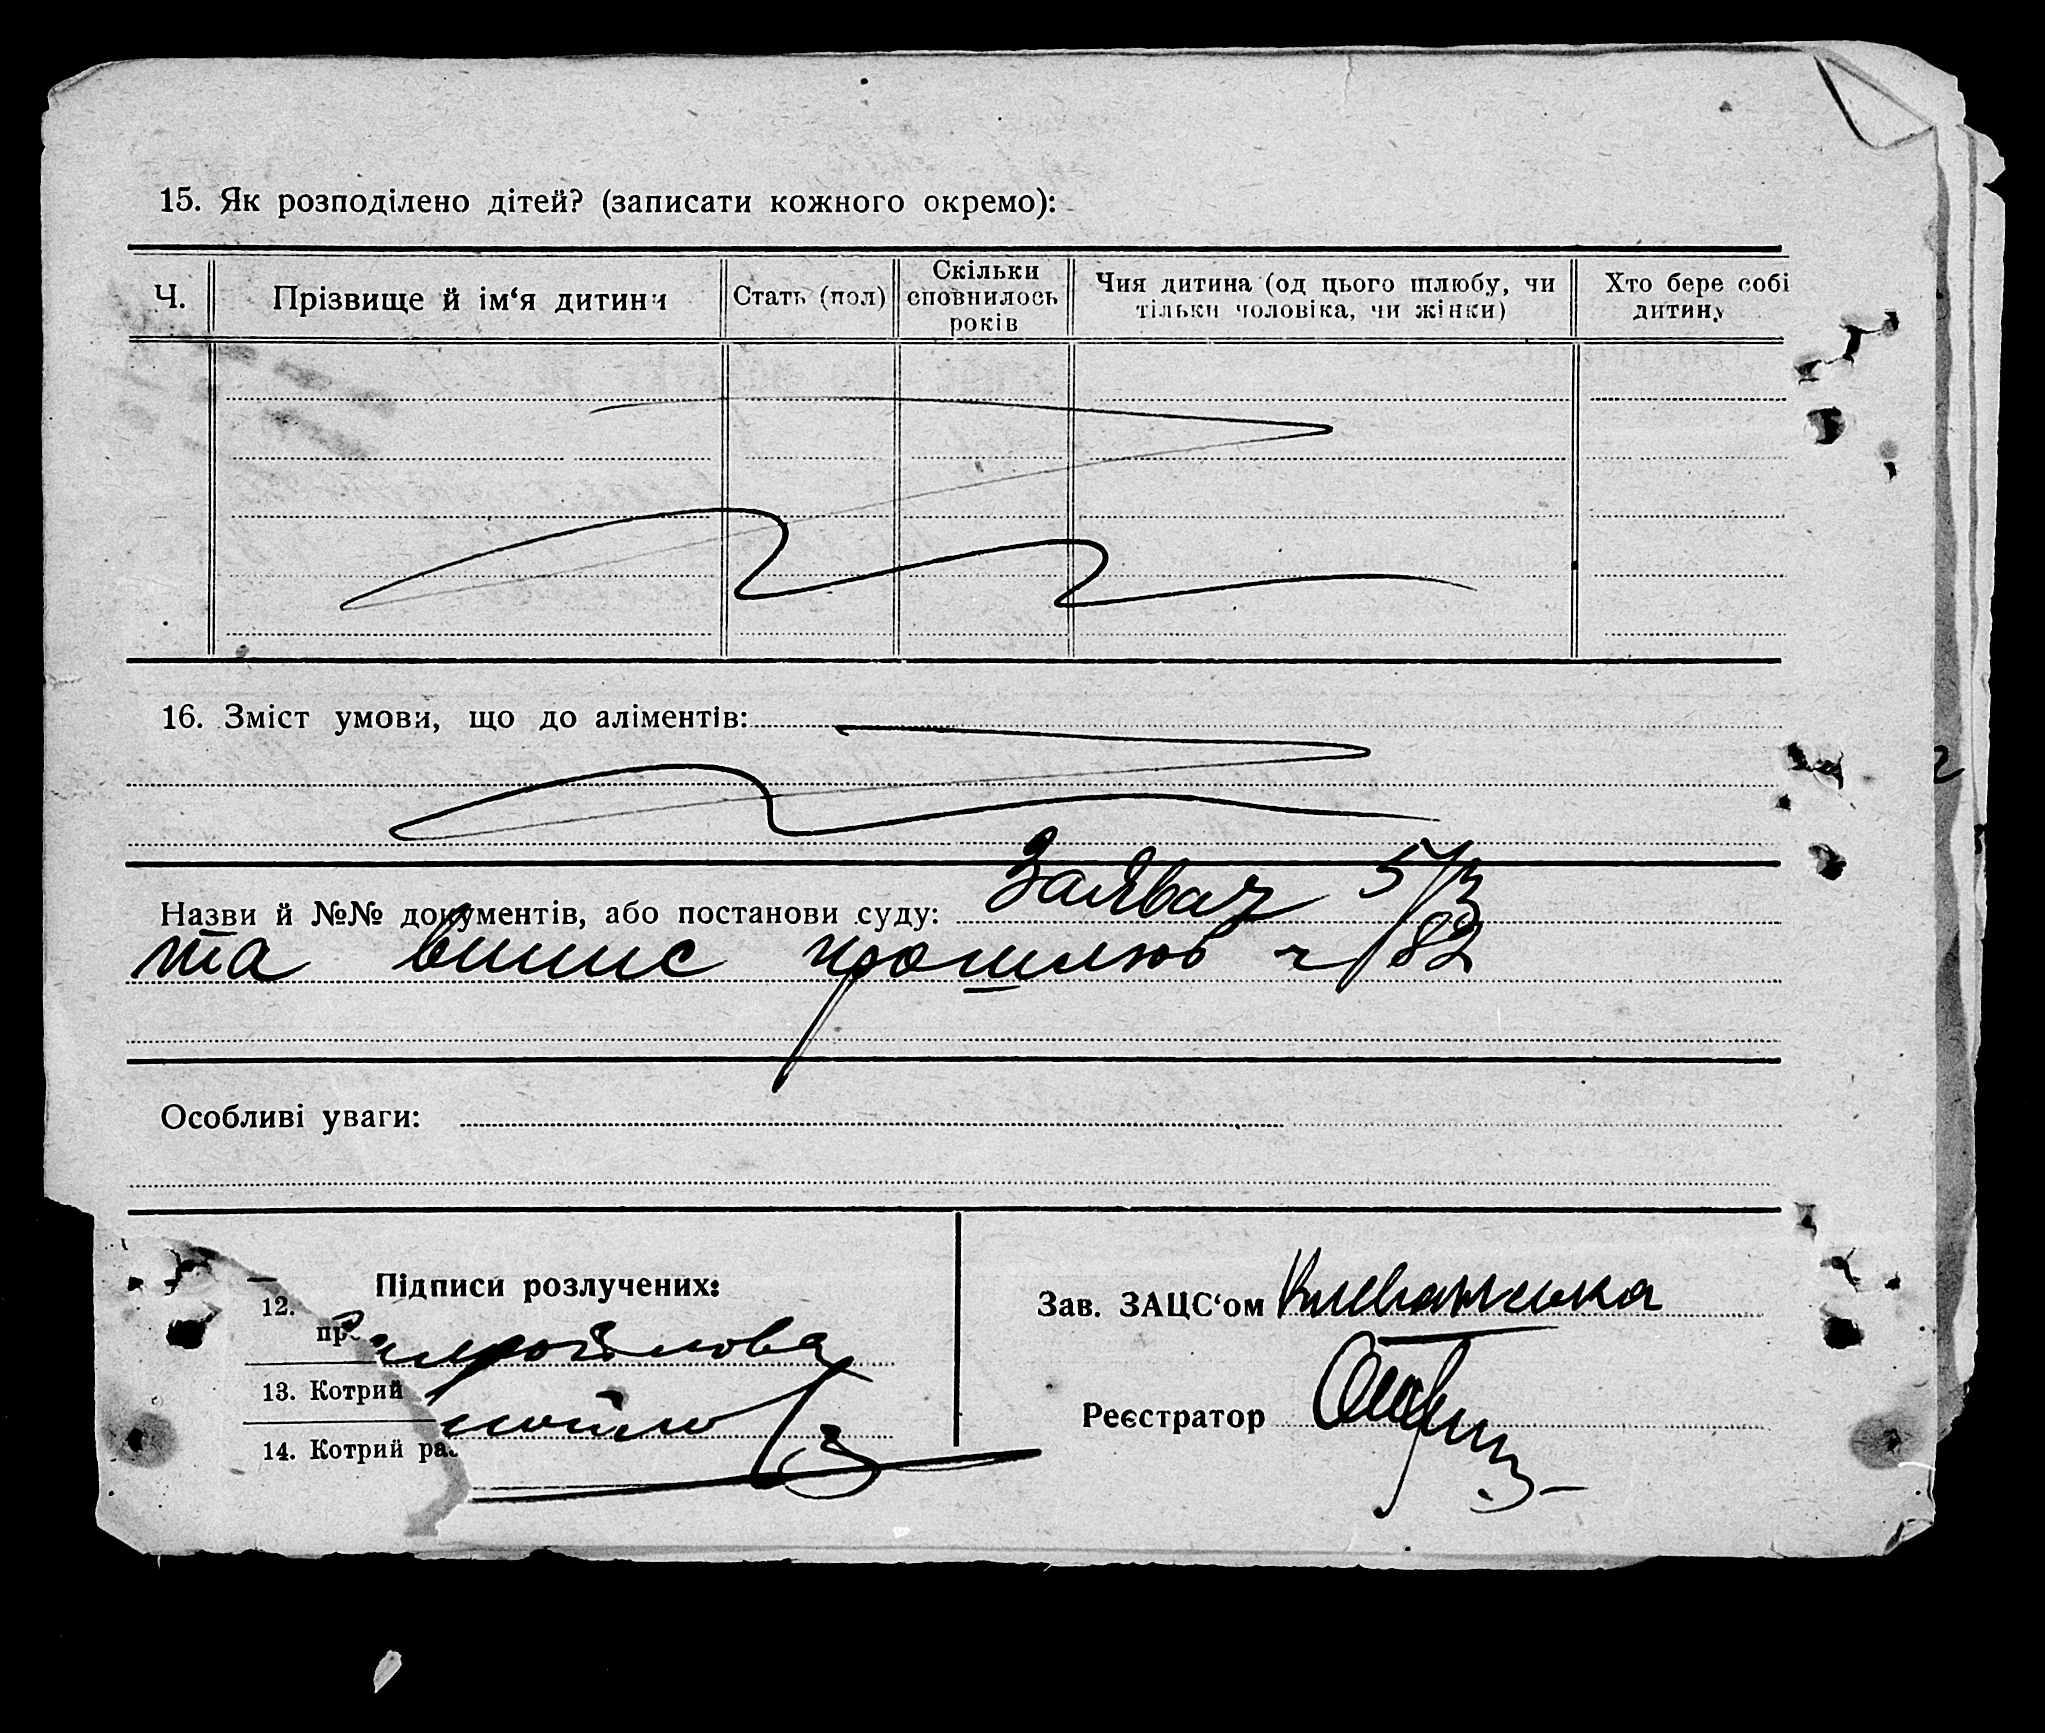 15. Як розподілено дітей? (записати кожного окремо):
Ч.
Прізвище й ім‘я дитини
Стать (пол)
Скільки
сповнилось
років
Чия дитина (од цього шлюбу, чи
тільки чоловіка, чи жінки)
Хто бере собі
дитину
16. Зміст умови, що до аліментів:
Назви й №№ документів, або постанови суду: Заява ч 5/3
та випис про шлюб ч 82
Особливі уваги:
Підписи розлучених:
12.
13. Котрий
14. Котрий
Зав. ЗАЦС‘ом
Реєстратор